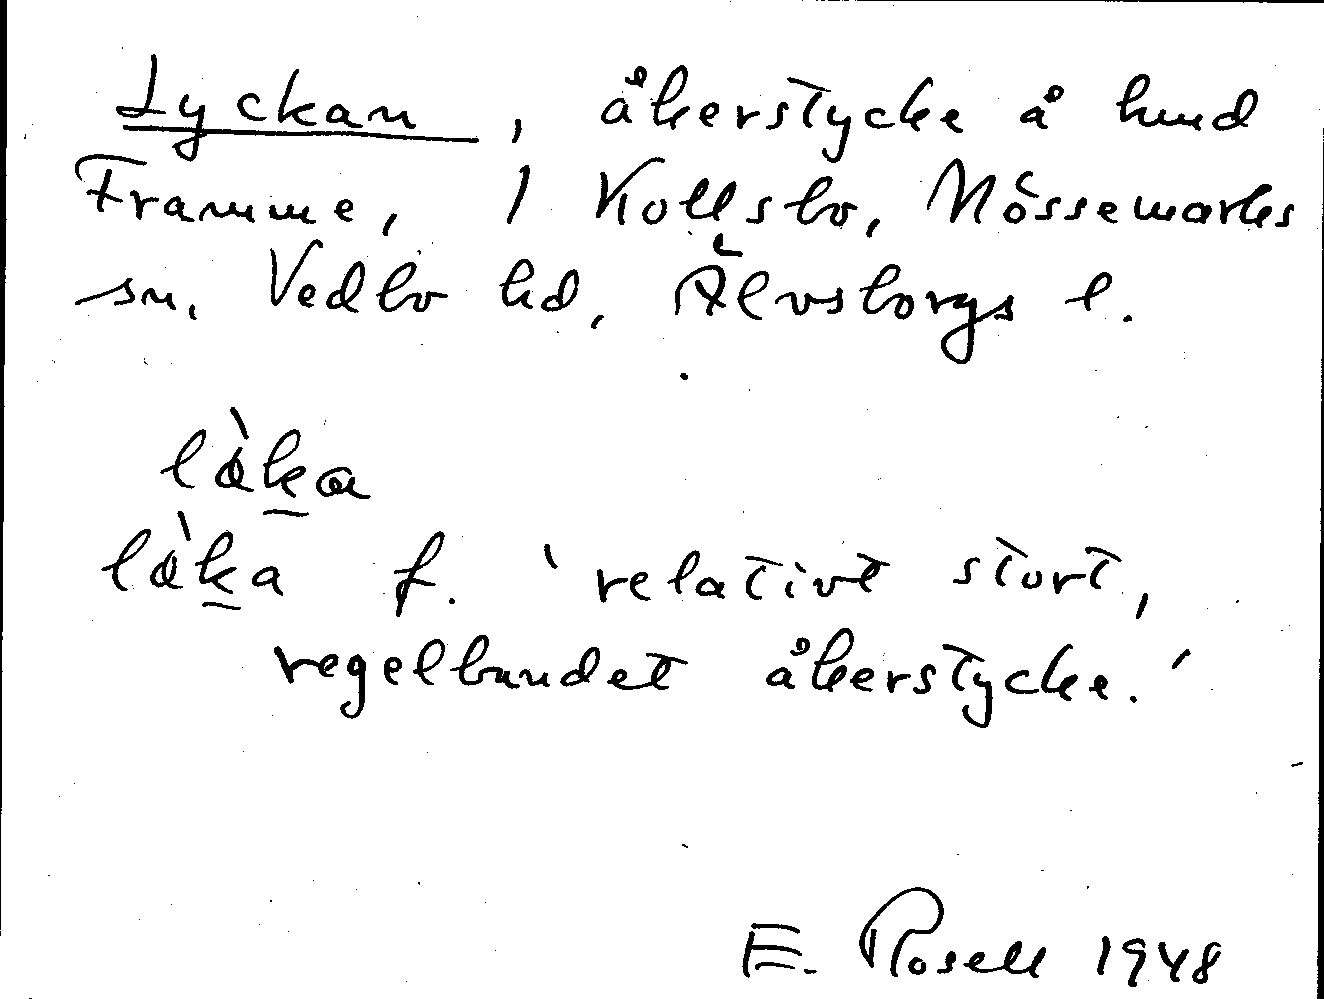 Lyckan, åkerstycke å hmd
Framme, 1 Kollsbo, Nössemarks
sn. Vedbo hd, Älvsborgs l.
lò̀ka
lò̀ka f. 'relativt stort,
regelbundet åkerstycke.'
E. Rosell 1948